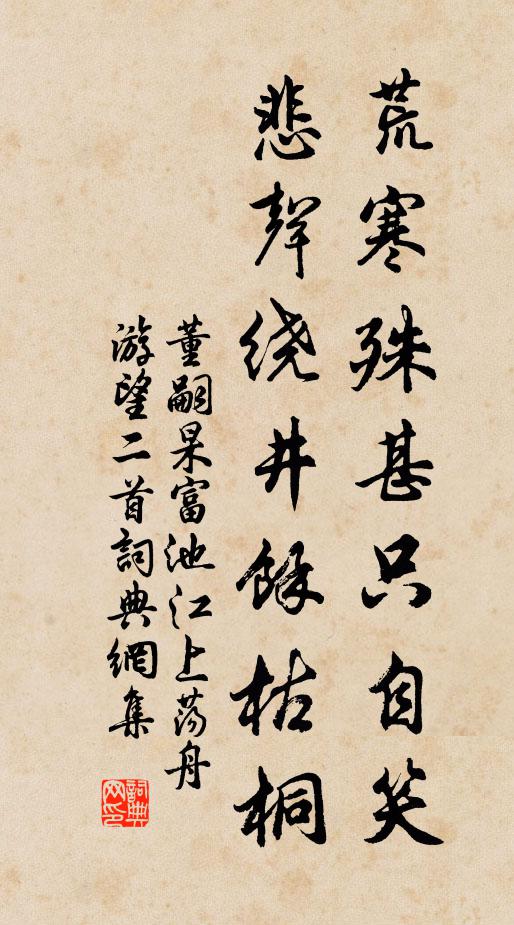 荒寒殊甚只自笑
悲聲绕井餘枯桐
董嗣杲富池江上蕩舟
游望二首詞典網集
詞典网印